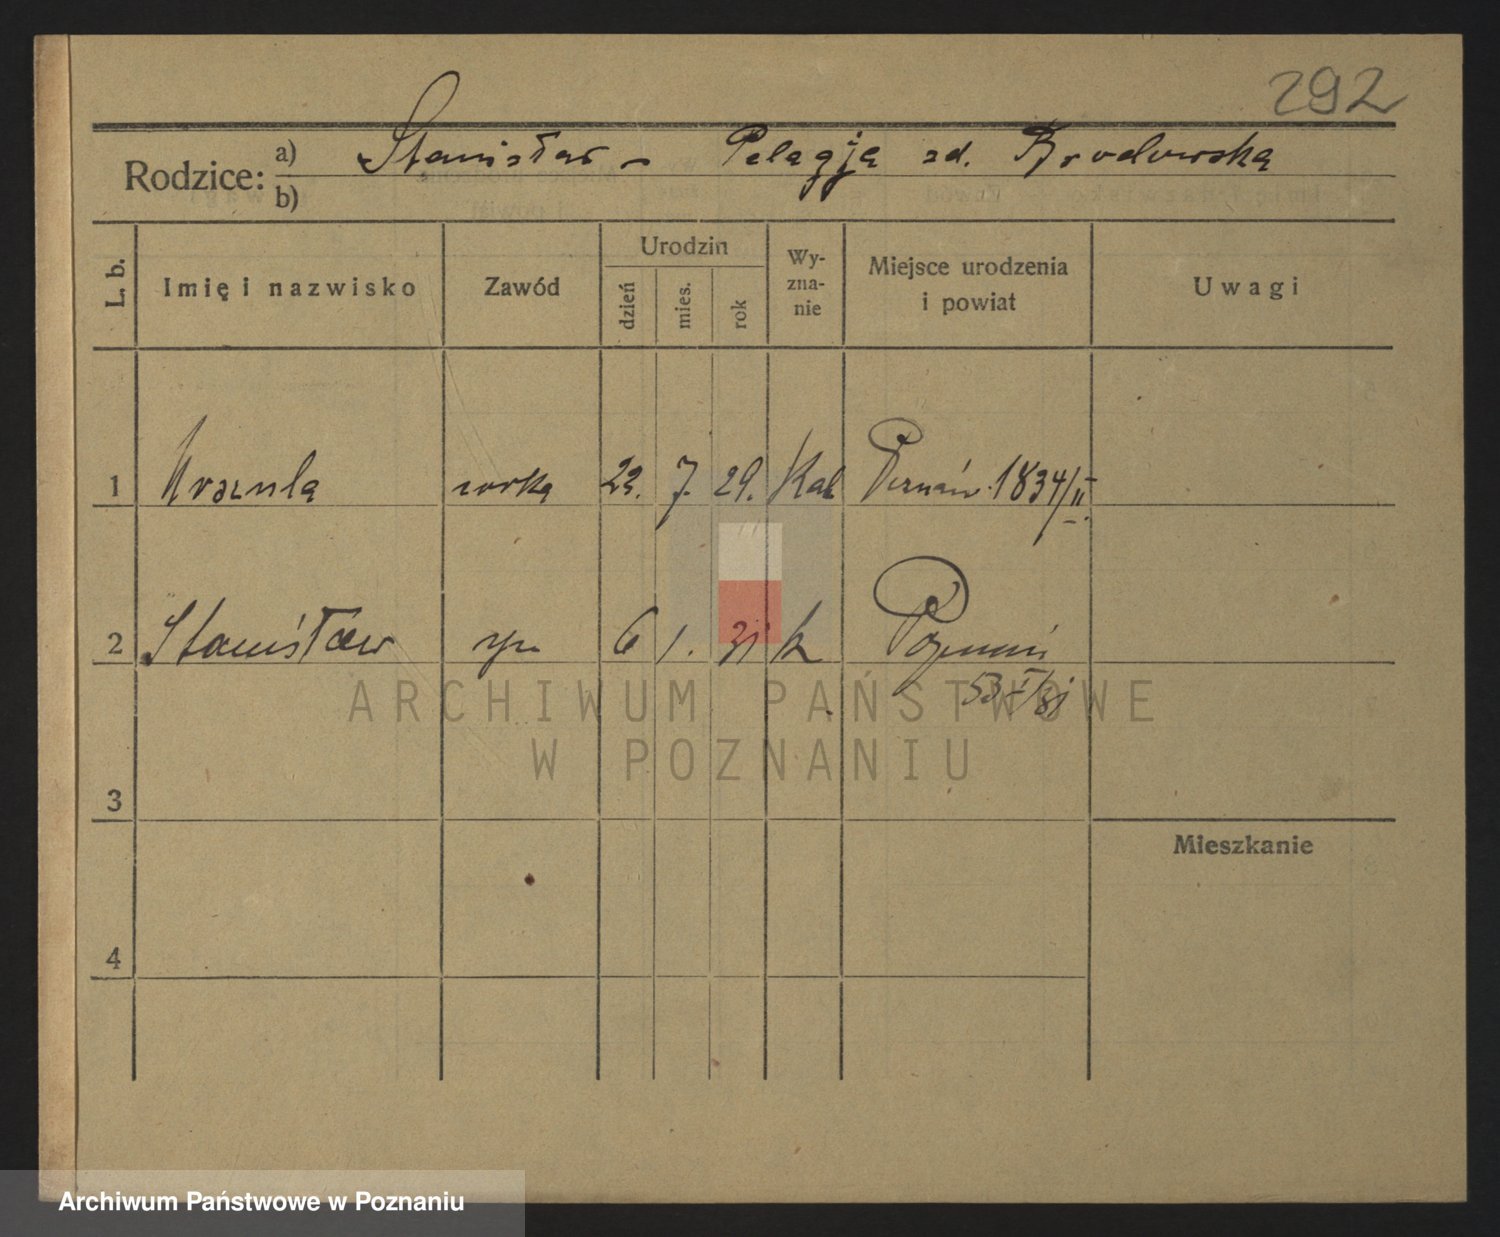 292
Rodzice: a) Stanisław – Pelagja zd. Brodowska
b)
L. b. Imię i nazwisko Zawód Urodzin dzień mies. rok Wyznanie Miejsce urodzenia i powiat Uwagi
1 Urszula corka 23. 7. 29. Kat Poznań 1834/II.
2 Stanisław syn 6 1. 31 k Poznań
53 I/31
ARCHIWUM PAŃSTWOWE
W POZNANIU
3
Mieszkanie
4
Archiwum Państwowe w Poznaniu